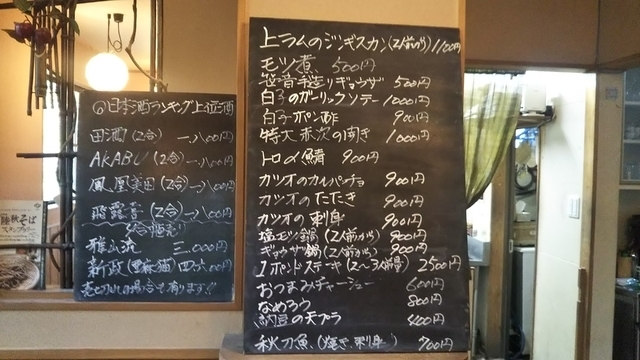 日本酒ランキング上位酒
田酒(2合) 一、八〇〇円
AKABU(2合) 一、八〇〇円
鳳凰美田(2合) 一、八〇〇円
飛露喜(2合) 一、八〇〇円
雅山流 三、〇〇〇円
新政
売り切れの場合も有ります!!
秋そば
スタンプラリー
上ラムのジンギスカン(2人前から)1100円
モツ煮 500円
手造りギョウザ 500円
白子のガーリックソテー 1000円
白子ポン酢 900円
特大赤次の開き 1000円
トロ〆鯖 900円
カツオのカルパッチョ 900円
カツオのたたき 900円
カツオの刺身 900円
塩モツ鍋(2人前から) 900円
ギョウザ鍋(2人前から) 900円
1ポンドステーキ(2〜3人前量) 2500円
おつまみチャーシュー 600円
なめろう 800円
納豆の天プラ 400円
秋刀魚(焼き、刺身) 700円